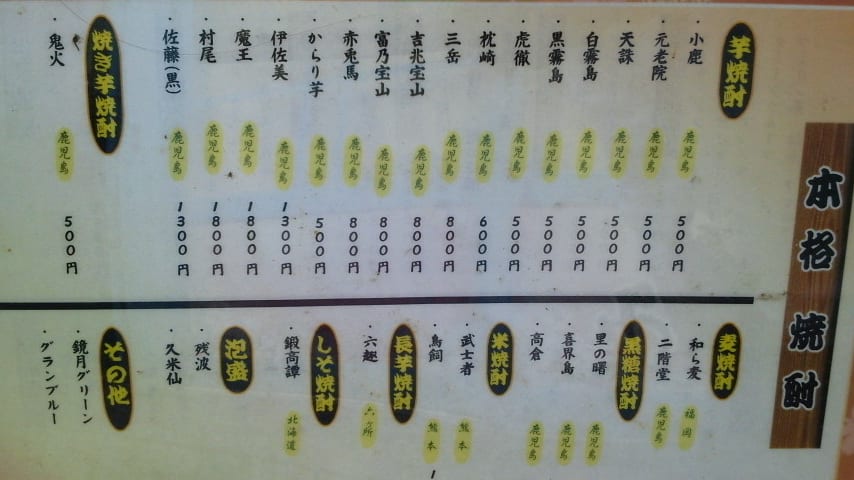 本格焼酎
芋焼酎
・小鹿 鹿児島 500円
・元老院 鹿児島 500円
・天誅 鹿児島 500円
・白霧島 鹿児島 500円
・黒霧島 鹿児島 500円
・虎徹 鹿児島 500円
・枕崎 鹿児島 600円
・三岳 鹿児島 800円
・吉兆宝山 鹿児島 800円
・富乃宝山 鹿児島 800円
・赤兎馬 鹿児島 800円
・からり芋 鹿児島 500円
・伊佐美 鹿児島 1300円
・魔王 鹿児島 1800円
・村尾 鹿児島 1800円
・佐藤(黒) 鹿児島 1300円
焼き芋焼酎
・鬼火 鹿児島 500円
麦焼酎
・和ら麦 福岡
・二階堂 鹿児島
黒糖焼酎
・里の曙 鹿児島
・喜界島 鹿児島
・高倉 鹿児島
米焼酎
・武士者 熊本
・鳥飼 熊本 1
長芋焼酎
・六趣 六ヶ所
しそ焼酎
・鍛高譚 北海道
泡盛
・残波
・久米仙
その他
・鏡月グリーン
・グランブルー